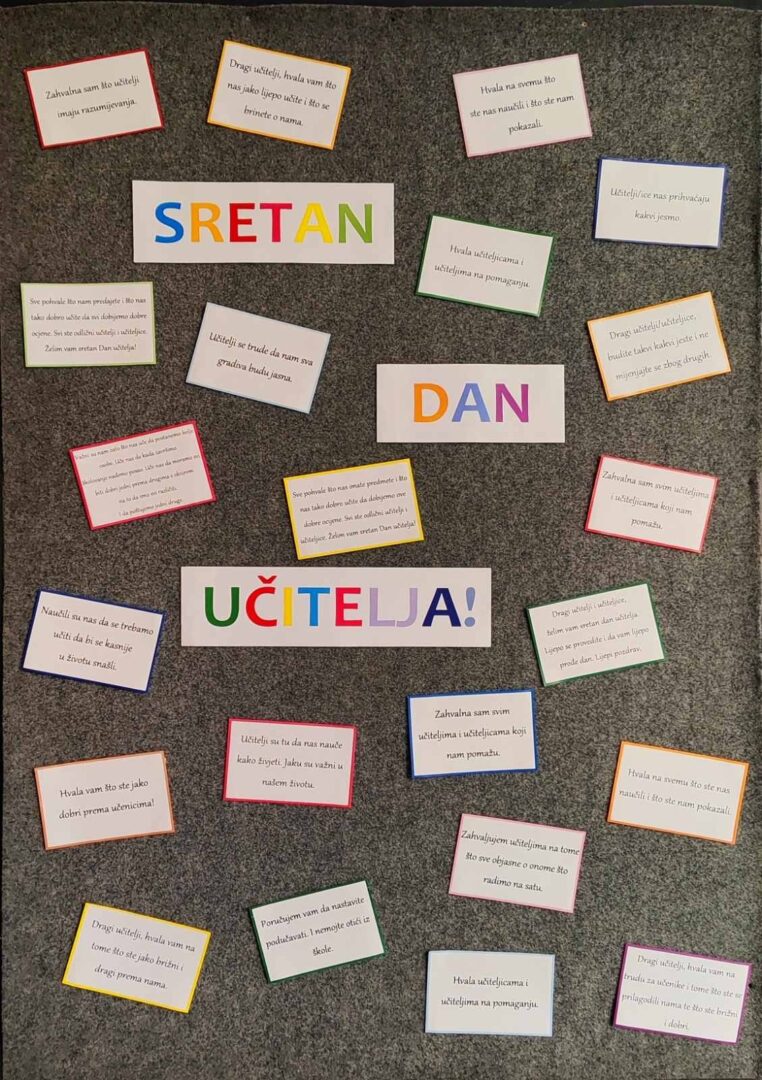 Zahvalna sam što učitelji
imaju razumijevanja.
Dragi učitelji, hvala vam što
nas jako lijepo učite i što se
brinete o nama.
Hvala na svemu što
ste nas naučili i što ste nam
pokazali.
Učitelji/ice nas prihvaćaju
kakvi jesmo.
SRETAN
Hvala učiteljicama i
učiteljima na pomaganju.
Sve pohvale što nam predajete i što nas
tako dobro učite da svi dobijemo dobre
ocjene. Svi ste odlični učitelji i učiteljice.
Želim vam sretan Dan učitelja!
Učitelji se trude da nam sva
gradiva budu jasna.
Dragi učitelji/učiteljice,
budite takvi kakvi jeste i ne
mijenjajte se zbog drugih.
DAN
Važni su nam zato što nas uče da postanemo bolje
osobe. Uče nas da kada završimo
školovanje nađemo posao. Uče nas da moramo svi
biti dobri jedni prema drugima s obzirom
na to da smo svi različiti
i da poštujemo jedni druge.
Sve pohvale što nas imate predmete i što
nas tako dobro učite da dobijemo ove
dobre ocjene. Svi ste odlični učitelji i
učiteljice. Želim vam sretan Dan učitelja!
Zahvalna sam svim učiteljima
i učiteljicama koji nam
pomažu.
UČITELJA!
Naučili su nas da se trebamo
učiti da bi se kasnije
u životu snašli.
Dragi učitelji i učiteljice,
želim vam sretan dan učitelja.
Lijepo se provedite i da vam lijepo
prođe dan. Lijepi pozdrav.
Zahvalna sam svim
učiteljima i učiteljicama koji
nam pomažu.
Učitelji su tu da nas nauče
kako živjeti. Jaku su važni u
našem životu.
Hvala vam što ste jako
dobri prema učenicima!
Hvala na svemu što ste nas
naučili i što ste nam pokazali.
Zahvaljujem učiteljima na tome
što sve objasne o onome što
radimo na satu.
Dragi učitelji, hvala vam na
tome što ste jako brižni i
dragi prema nama.
Poručujem vam da nastavite
podučavati. I nemojte otići iz
škole.
Hvala učiteljicama i
učiteljima na pomaganju.
Dragi učitelji, hvala vam na
trudu za učenike i tome što ste se
prilagodili nama te što ste brižni
i dobri.